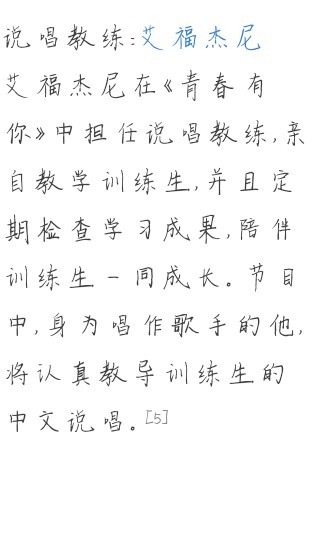 说唱教练:艾福杰尼
艾福杰尼在《青春有
你》中担任说唱教练,亲
自教学训练生,并且定
期检查学习成果,陪伴
训练生一同成长。节目
中,身为唱作歌手的他,
将认真教导训练生的
中文说唱。[5]